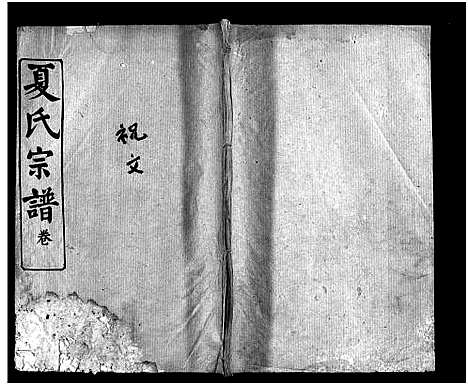 夏氏宗譜卷
祝文